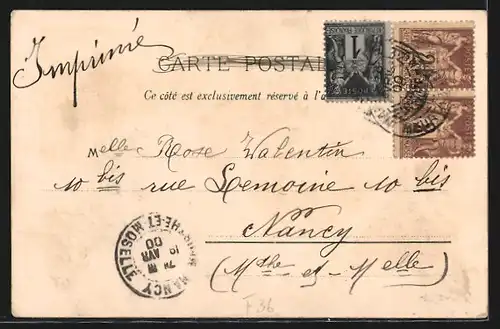 Imprimé
CARTE POSTAL
Ce côté est exclusivement réservé à l'a
1
POSTES
Melle Rose Valentin
10 bis rue Lemoine 10 bis
Nancy
(Mthe et Melle)
NANCY MEURTHE ET MOSELLE
AVR
00
F36